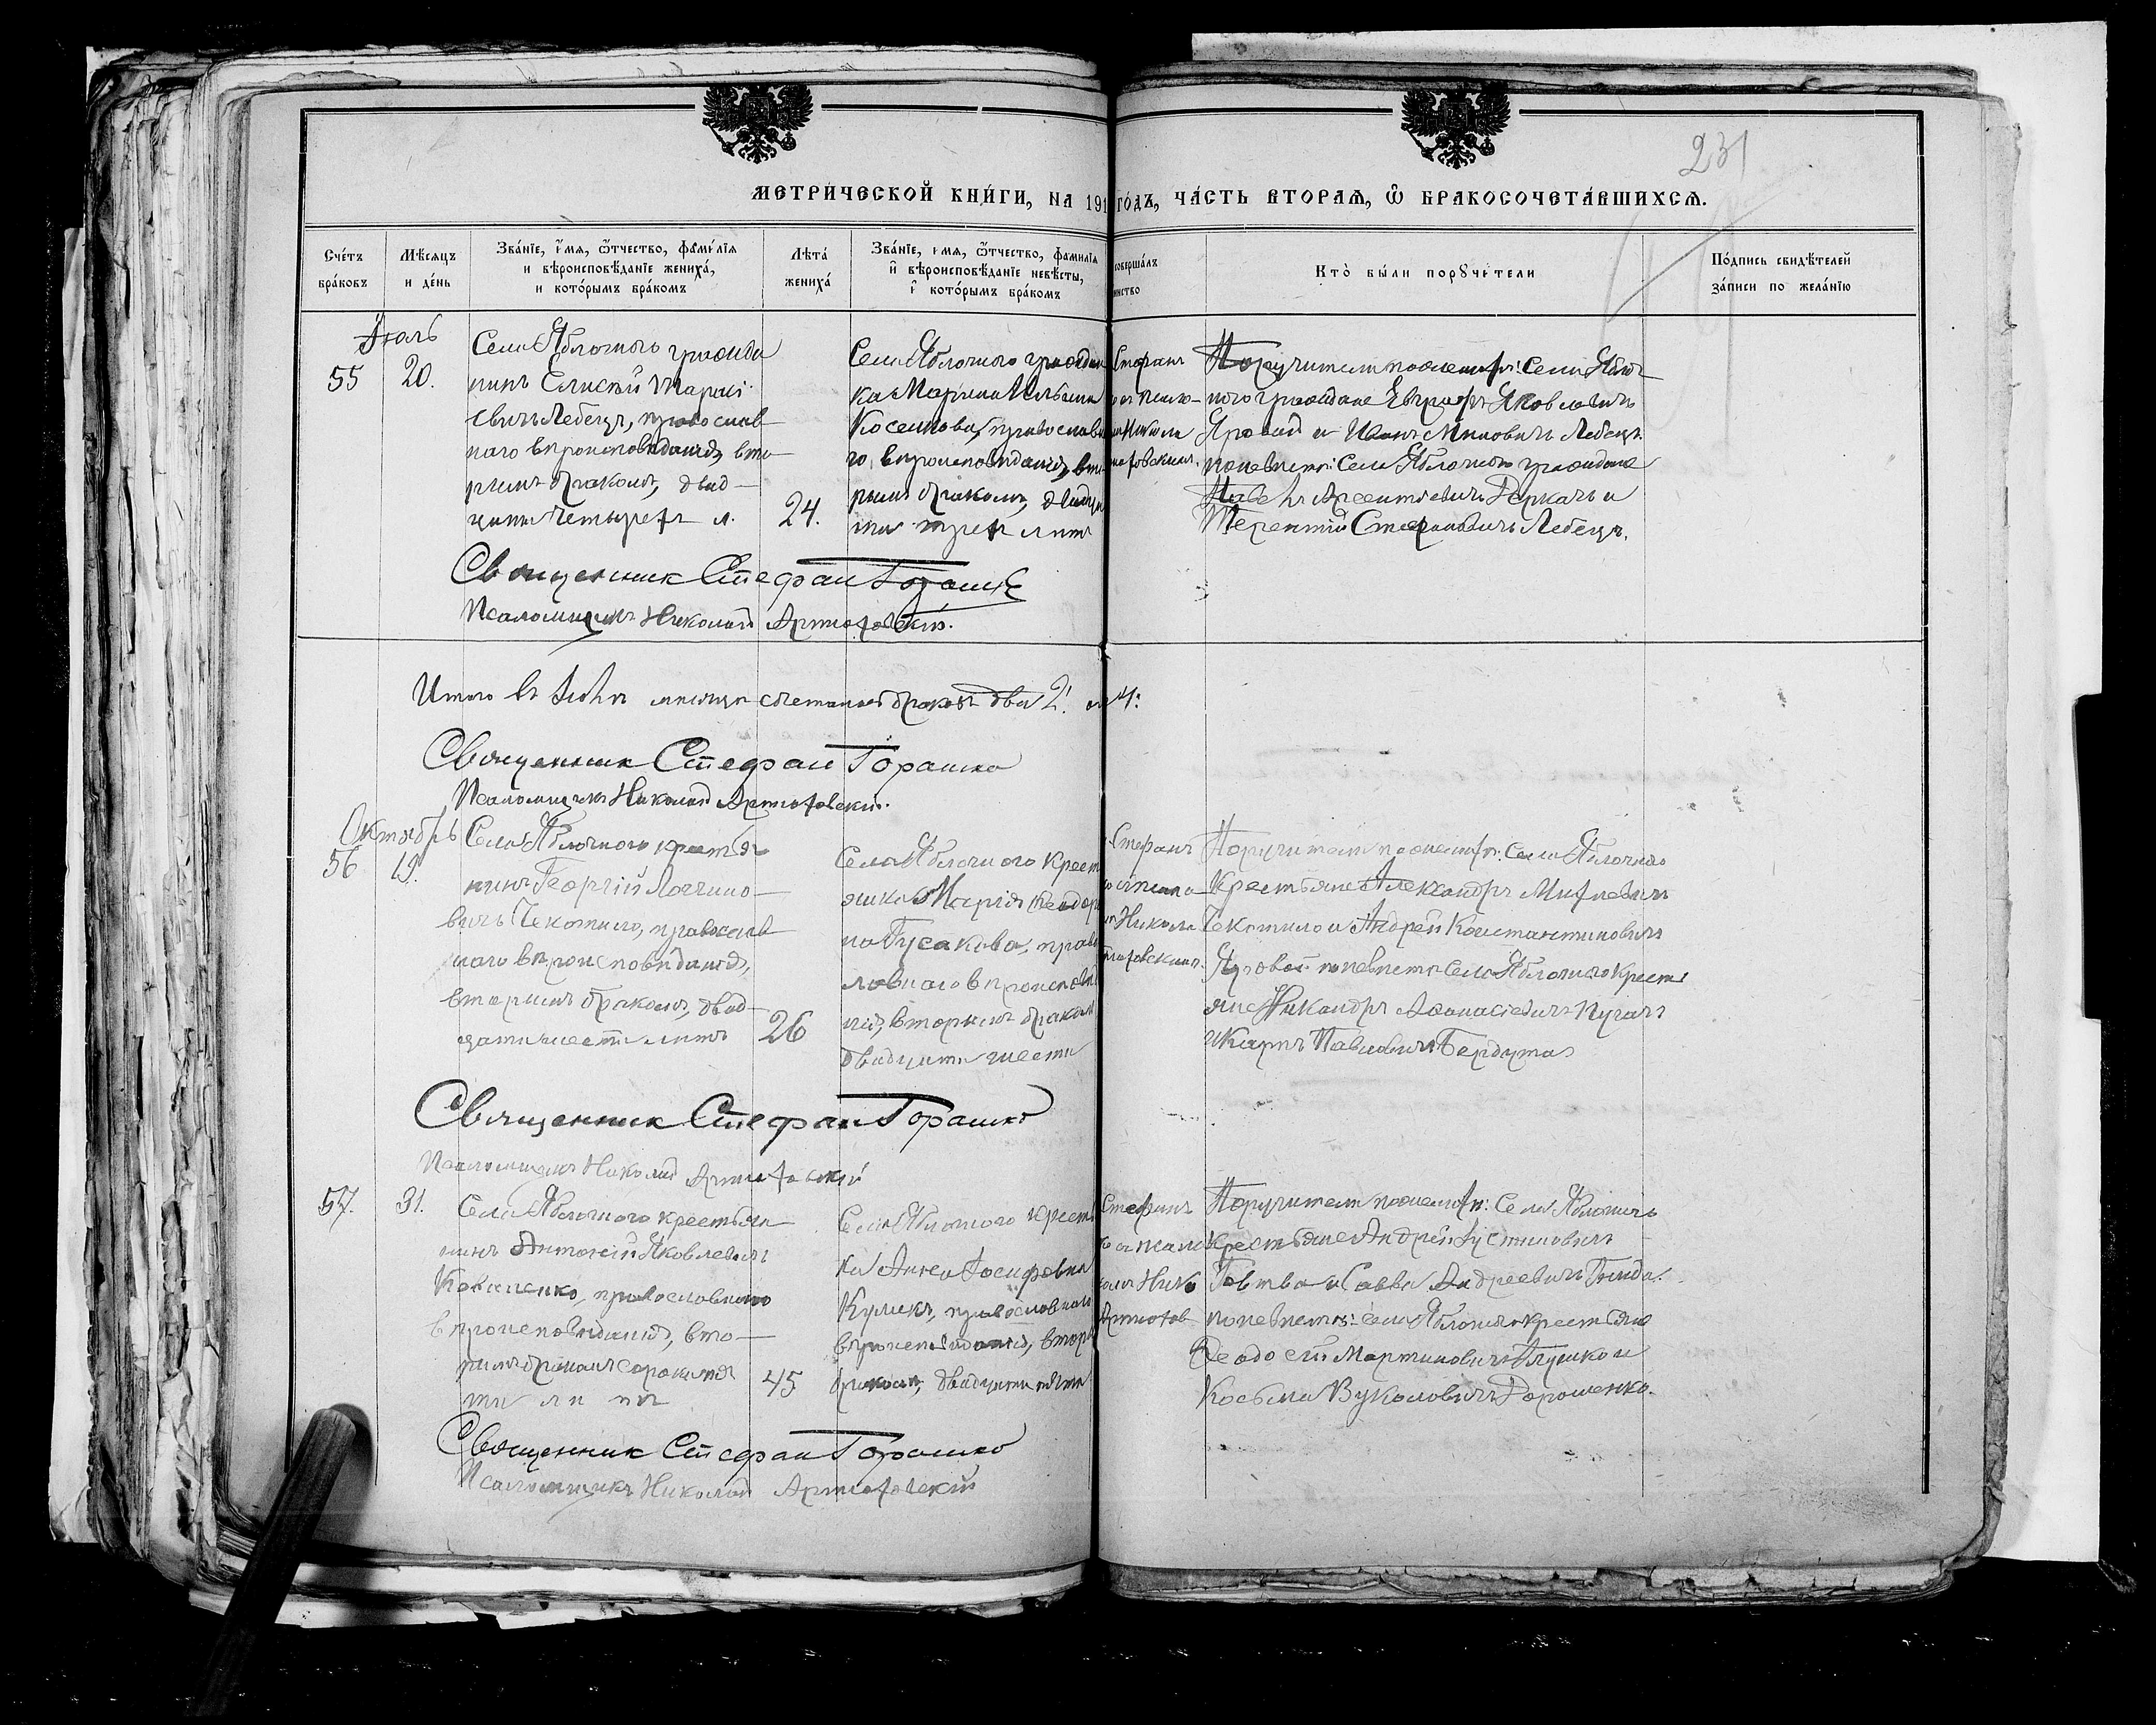 231
МЕТРИЧЕСКОЙ КНИГИ, НА 191 ГОДЪ, ЧАСТЬ ВТОРАЯ, Ѡ БРАКОСОЧЕТАВШИХСЯ.
Счетъ браковъ
Мѣсяцъ и день
Званіе, имя, ѿчество, фамилія
и вѣроисповѣданіе жениха,
и которымъ бракомъ
Лѣта жениха
Званіе, имя, ѿчество, фамилія
и вѣроисповѣданіе невѣсты,
и которымъ бракомъ
совершалъ
инство
Кто были поручители
Подпись свидѣтелей
записи по желанію
Іюль
55
20.
Села Яблочного гражда
нинъ Елисѣй
евичъ Лебецъ, православ
наго вѣроисповѣданія, вто
рымъ бракомъ, двад
цати четырехъ л.
24.
Села Яблочного граждан
ка Марина
Косенкова, православна
го вѣроисповѣданія, вто
рымъ бракомъ, двадца
ти трехъ лѣтъ
Стефанъ
Поручители по женихѣ: Села Яблоч
ного граждане Евграфъ Яковлевичъ
Яровой и Иванъ Миновичъ Лебецъ.
по невѣстѣ: Села Яблочного граждане
Павелъ Арсентіевичъ Деркачъ и
Терентій Стефановичъ Лебецъ.
Священник Стефан Горашко
Псаломщикъ Николай Артюховскій.
Итого въ Іюлѣ мѣсяцѣ бракъ два 2.
Священник Стефан Горашко
Псаломщикъ Николай Артюховскій.
Октябрь
56
19.
Села Яблочного крестья
нинъ Георгій Логгино
вичъ Чекотило, православ
наго вѣроисповѣданія,
вторымъ бракомъ, двад
цати шести лѣтъ
26
Села Яблочного крест
янка Марія Феодор
на Гусакова, право
лавнаго вѣроисповѣд
нія, вторымъ бракомъ
двадцати шести
Стефанъ
Никола
Поручители по женихѣ: Села Яблочного
Крестьяне Александръ Михеевичъ
Чекотило и Андрей Константиновичъ
Яровой. по невѣстѣ: Села Яблочного Крест
яне Никандръ Аѳанасіевичъ Пугачъ
и Карпъ Павловичъ Бердута
Священник Стефан Горашко
Псаломщикъ Николай Артюховскій
57.
31.
Села Яблочного крестьян
нинъ Антоній Яковлевичъ
Коваленко, православнаго
вѣроисповѣданія, вто
рымъ бракомъ сорока пя
ти лѣтъ
45
Села Яблочного крест
ка Анна Іосифовна
Куликъ, православнаго
вѣроисповѣданія, вторы
бракомъ, двадцати пяти
Стефанъ
Нико
Артюхов
Поручители по женихѣ: Села Яблочного
Крестьяне Андрей Іустиновичъ
Говтва и Савва Андреевичъ
по невѣстѣ: Села Яблочного крестьяне
Ѳеодосій Мартиновичъ Глушко и
Косьма Вуколовичъ Дорошенко.
Священник Стефан Горашко
Псаломщикъ Николай Артюховскій